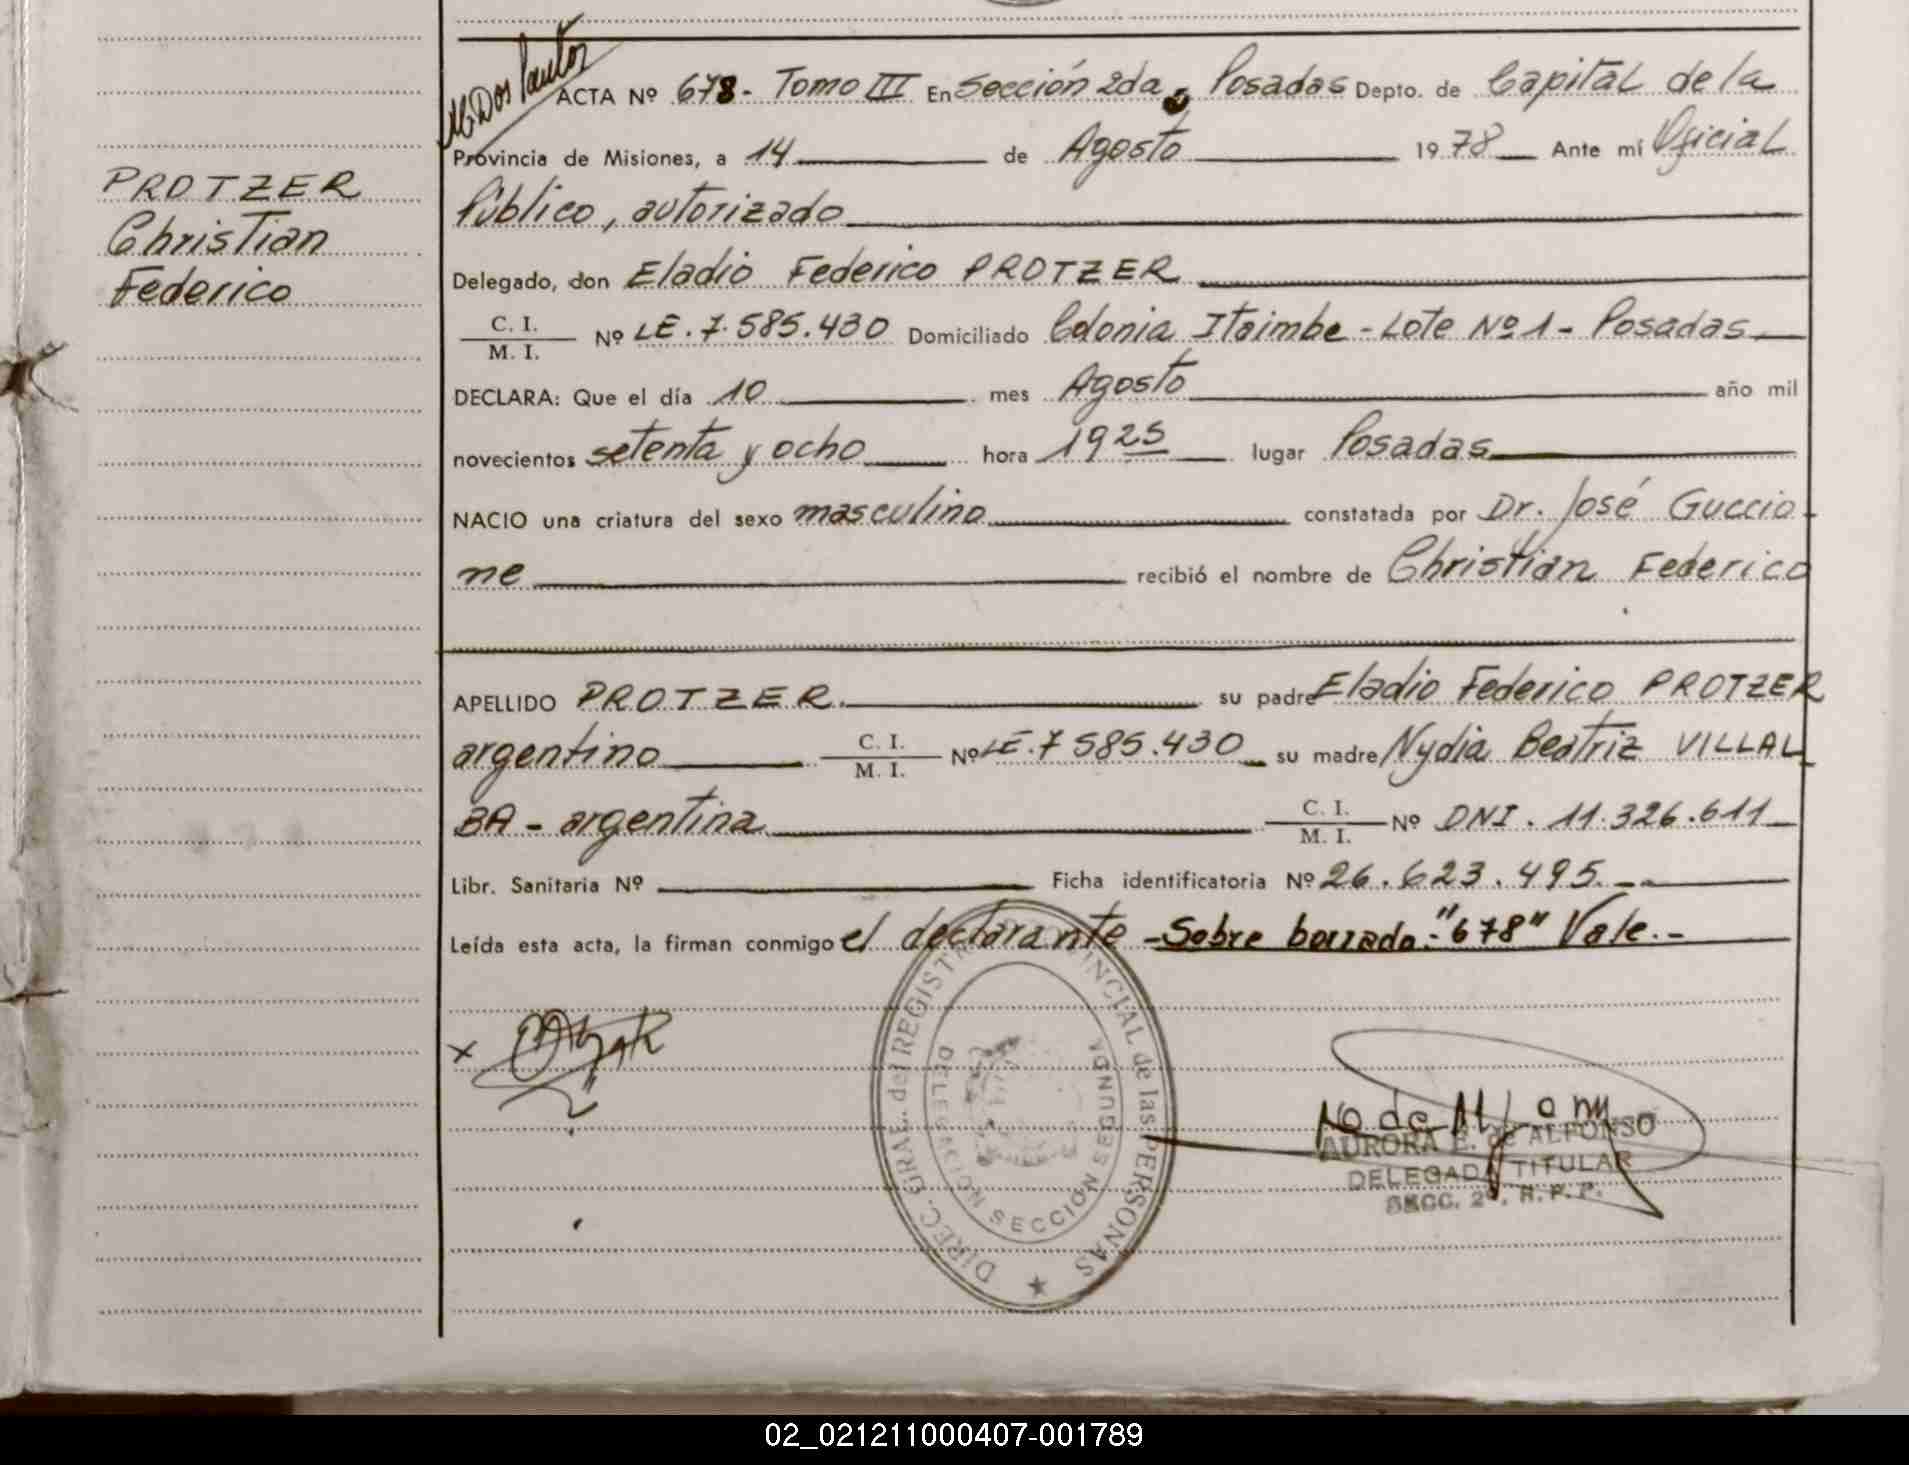 M Dos Santos
ACTA Nº 678- Tomo III En Sección 2da, Posadas Depto. de Capital de la
Provincia de Misiones, a 14 de Agosto 1978 Ante mí Oficial
Público, autorizado
Delegado, don Eladio Federico PROTZER
C. I.
M. I.
Nº LE. 7.585.430 Domiciliado Colonia Itaimbe - Lote Nº 1 - Posadas
DECLARA: Que el día 10 mes Agosto año mil
novecientos setenta y ocho hora 1925 lugar Posadas
NACIO una criatura del sexo masculino constatada por Dr. José Guccio-
ne recibió el nombre de Christian Federico
APELLIDO PROTZER su padre Eladio Federico PROTZER
argentino C. I. M. I. Nº LE. 7 585.430 su madre Nydia Beatriz VILLAL-
BA - argentina C. I. M. I. Nº DNI. 11.326.611
Libr. Sanitaria Nº Ficha identificatoria Nº 26.623.495.-
Leída esta acta, la firman conmigo el declarante - Sobre borrado - "678" Vale.-
PROTZER
Christian
Federico
x
DIREC. GRAL. del REGISTRO PROVINCIAL de las PERSONAS
DELEGACION SECCION SEGUNDA
AURORA E. de ALFONSO
DELEGADA TITULAR
SECC. 2ª. R. P. P.
02_021211000407-001789